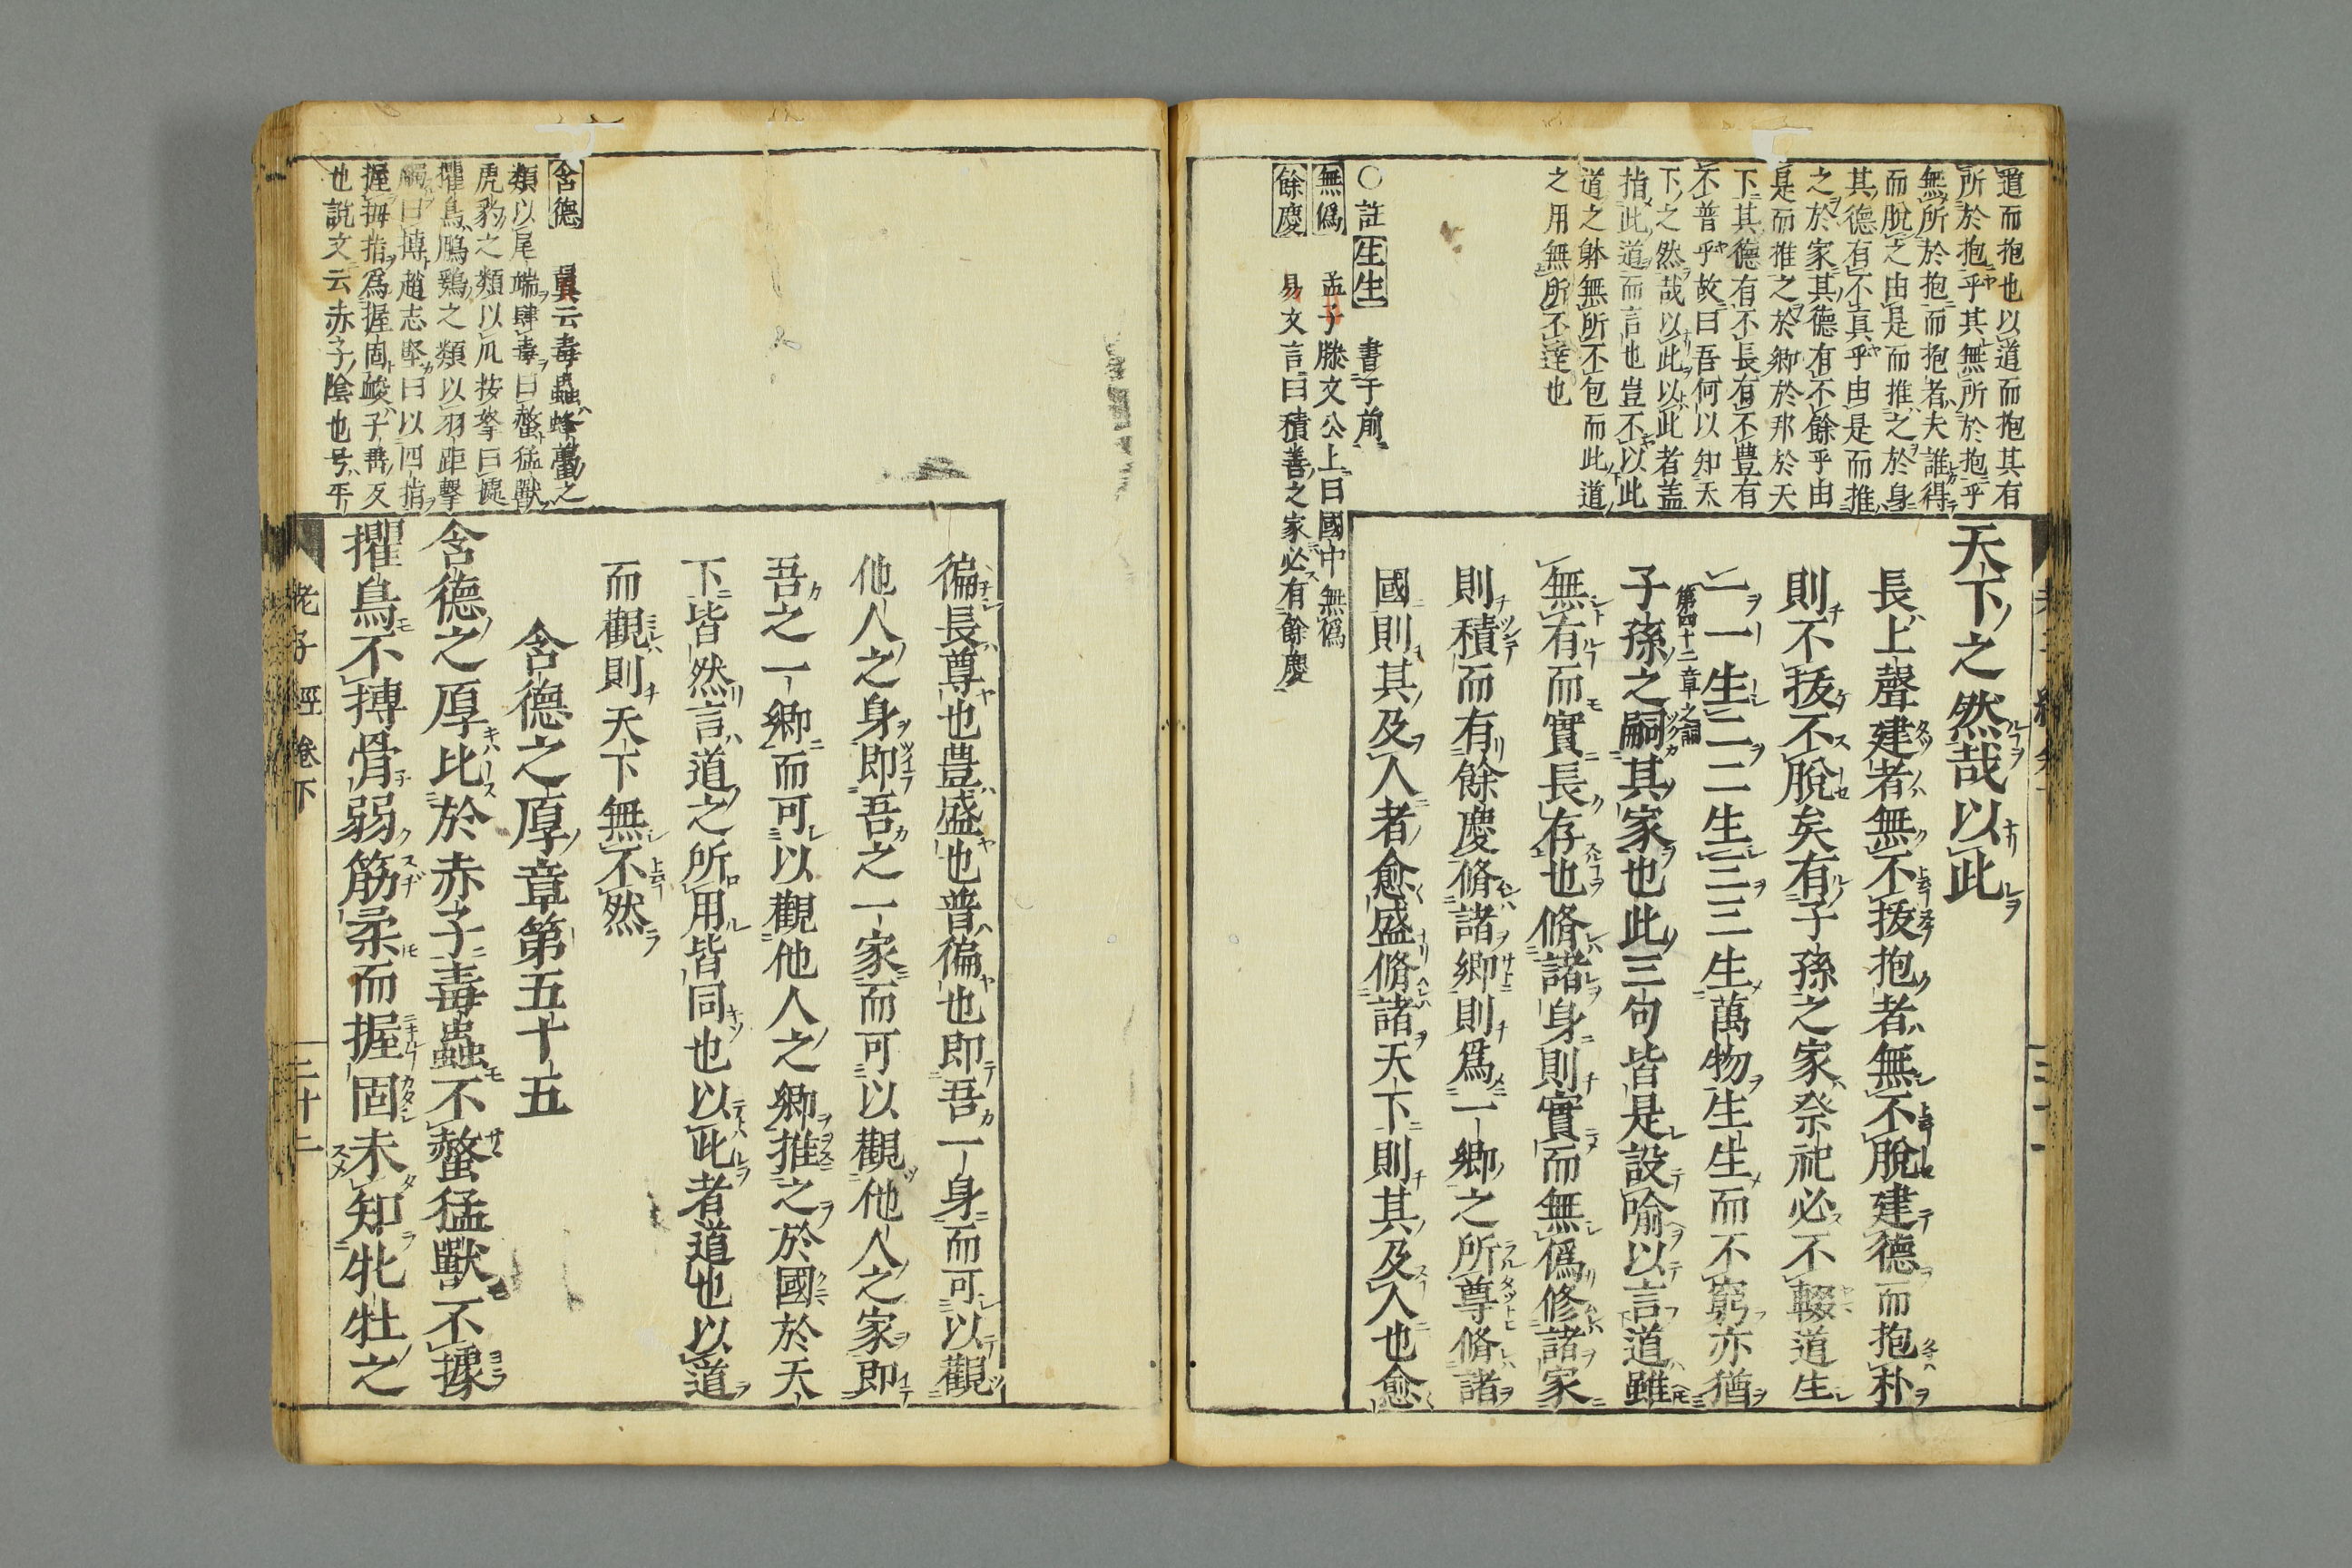 道而抱也以道而抱其有
所於抱乎其無所於抱乎
無所於抱而抱者夫誰得
而脫之由是而推之於身
其德有不真乎由是而推
之於家其德有不餘乎由
是而推之於鄉於邦於天
下其德有不長有不豊有
不普乎故曰吾何以知天
下之然哉以此以此者盖
指此道而言也豈不以此
道之躰無所不包而此道
之用無所不達也
〇註生生 書于前
無僞 孟子滕文公上曰國中無僞
餘慶 易文言曰積善之家必有餘慶
天下之然哉以此
長上聲建者無不抜抱者無不脫建德而抱朴
則不抜不脫矣有子孫之家祭祀必不輟道生
一一生二二生三三生萬物生生而不窮亦猶
第四十二章之詞
子孫之嗣其家也此三句皆是設喻以言道雖
無有而實長存也脩諸身則實而無僞修諸家
則積而有餘慶脩諸鄉則爲一鄉之所尊脩諸
國則其及人者愈盛脩諸天下則其及人也愈
徧長尊也豊盛也普徧也即吾一身而可以觀
他人之身即吾之一家而可以觀他人之家即
吾之一鄉而可以觀他人之鄉推之於國於天
下皆然言道之所用皆同也以此者道也以道
而觀則天下無不然
含德 翼云毒蟲蜂蠆之
類以尾端肆毒曰螫猛獸
虎豹之類以爪按拏曰據
攫鳥鵰鷄之類以羽距擊
觸曰搏趙志堅曰以四指
握拇指爲握固峻子垂反
也說文云赤子陰也号平
含德之厚章第五十五
含德之厚比於赤子毒蟲不螫猛獸不據
攫鳥不搏骨弱筋柔而握固未知牝牡之
老子經卷下
三十二